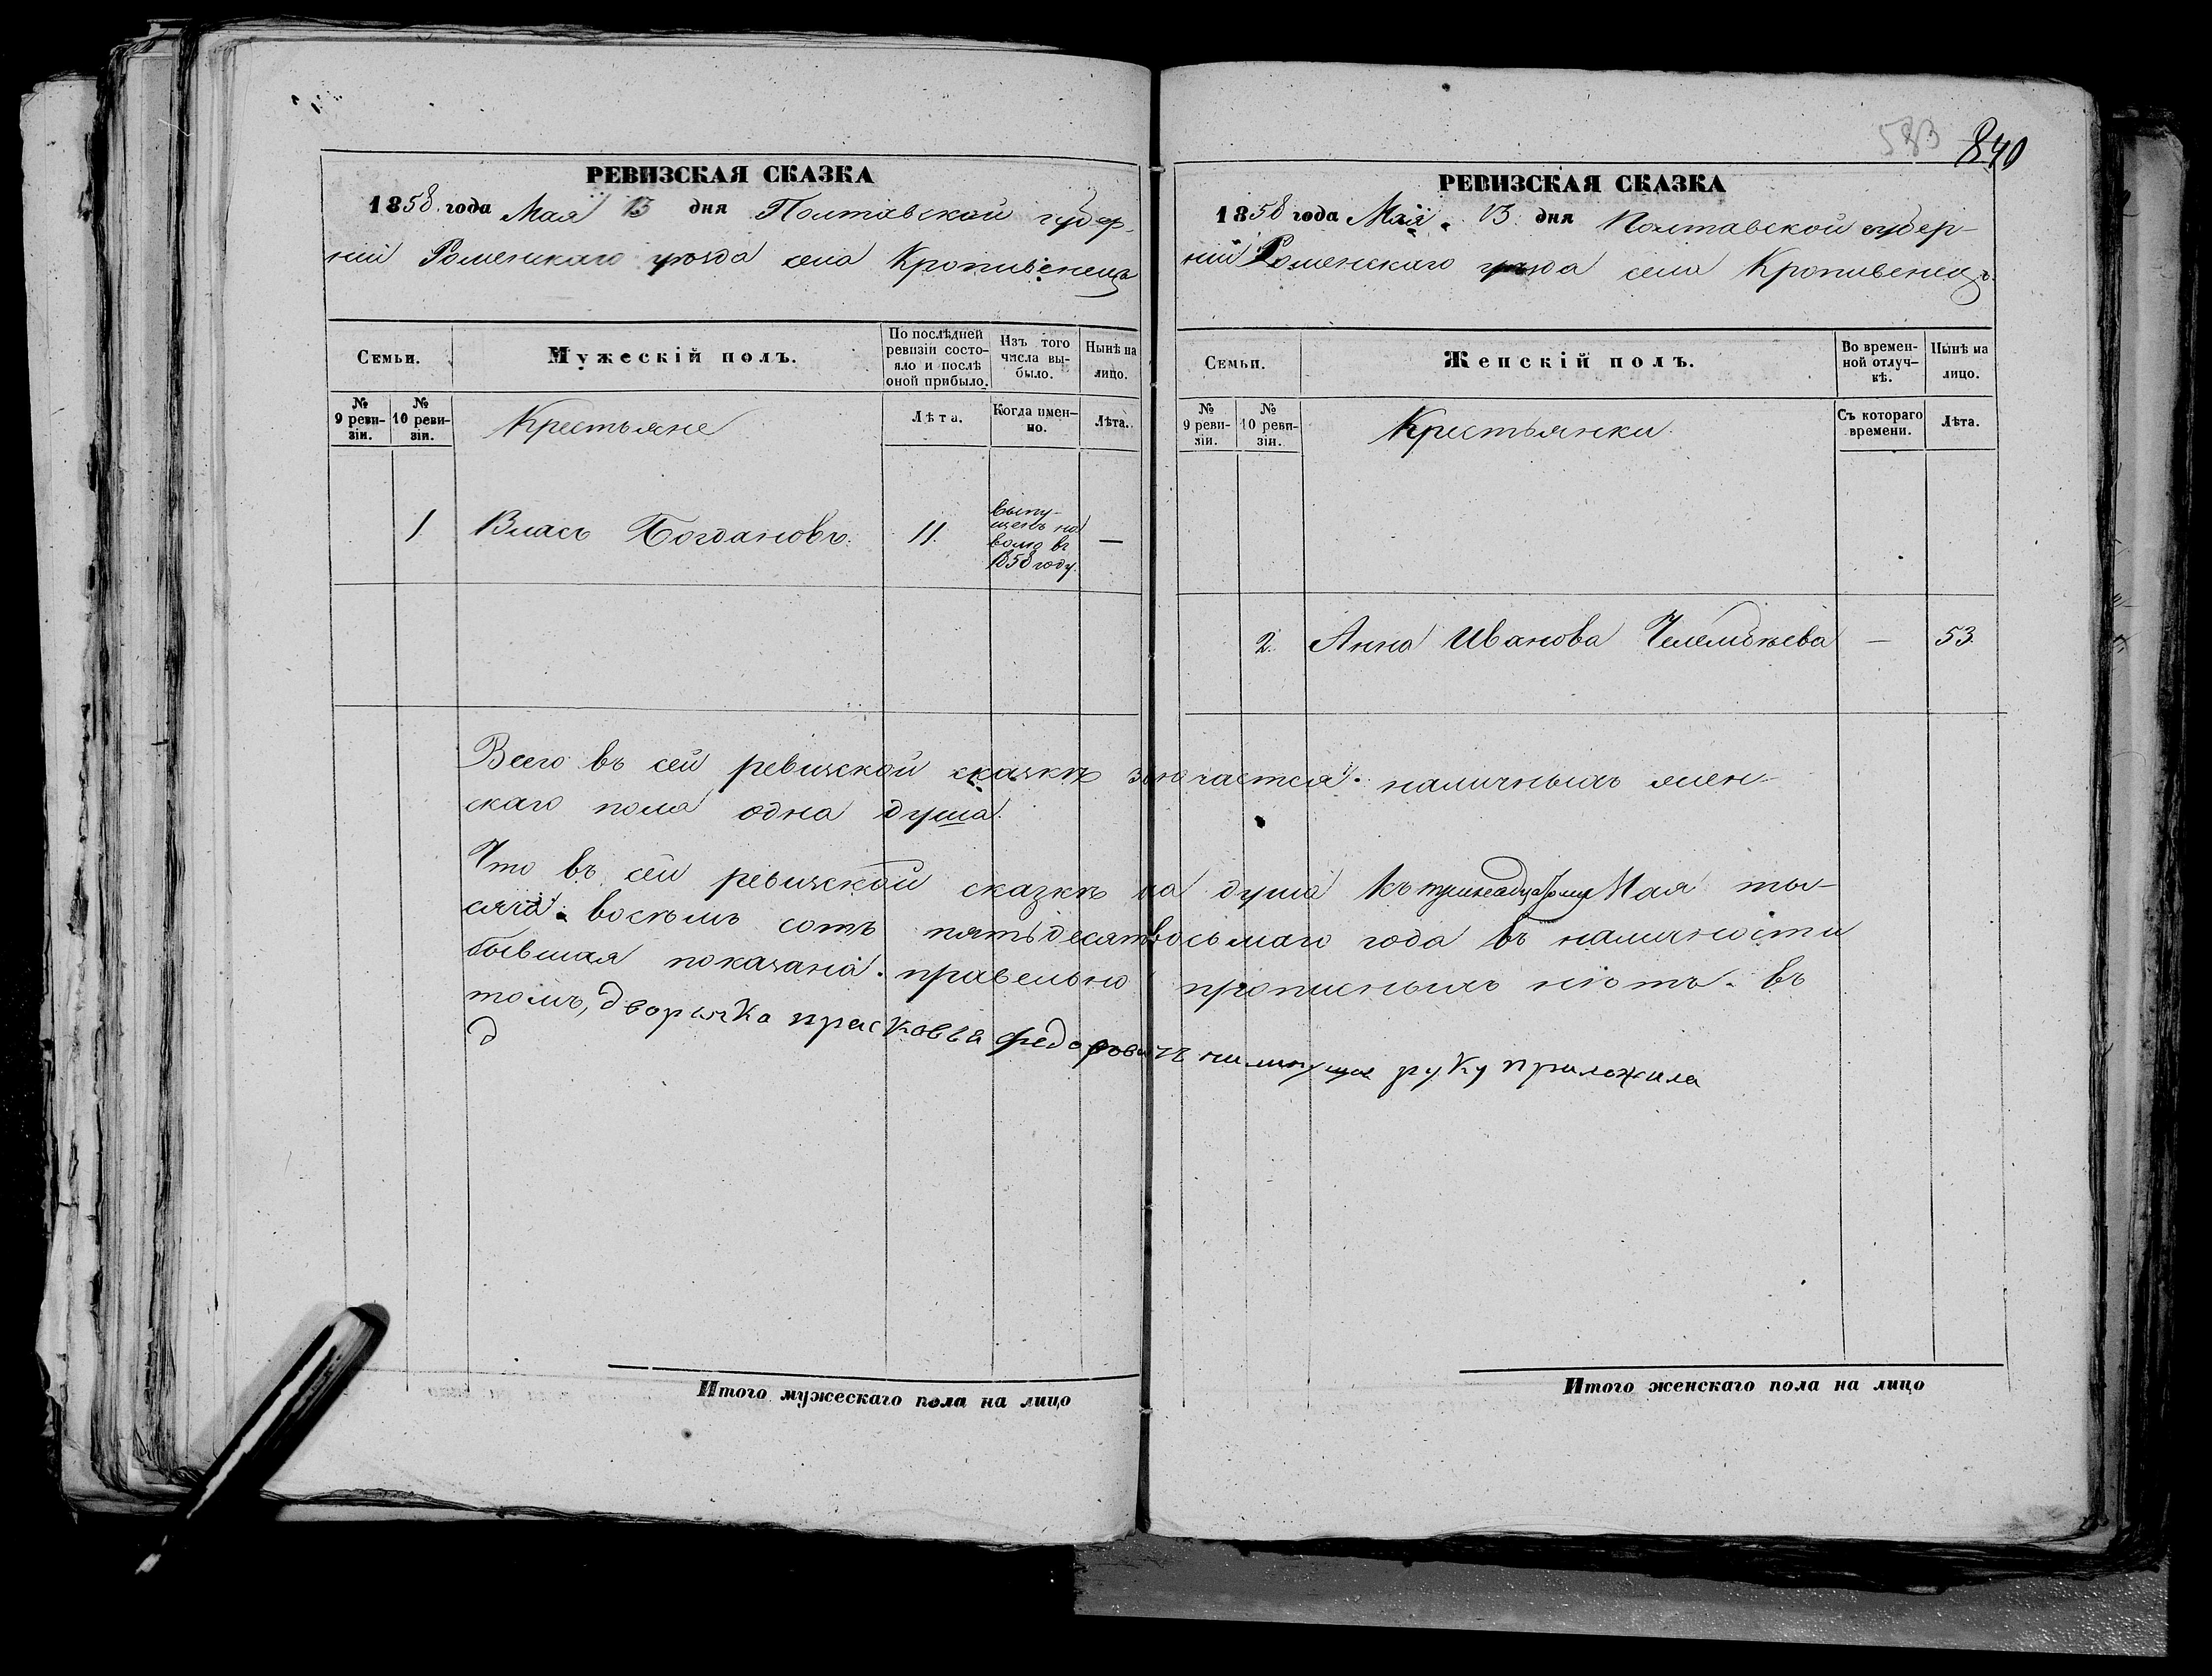 583 840
РЕВИЗСКАЯ СКАЗКА
1858 года Мая 13 дня Полтавской губер-
ніи Роменскаго уѣзда села Кропивенецъ
Семьи.
Мужескій полъ.
По послѣдней ревизіи состо-
яло и послѣ
оной прибыло.
Изъ того
числа вы-
было.
Нынѣ на
лицо.
№
9 реви-
зіи.
№
10 реви-
зіи.
Крестьяне
Лѣта.
Когда имен-
но.
Лѣта.
1 Власъ Богдановъ. 11.
выпу-
щенъ на
волю въ
1858 году.
—
РЕВИЗСКАЯ СКАЗКА
1858 года Мая 13 дня Полтавской губер-
ніи Роменскаго уѣзда села Кропивенецъ.
Семьи.
Женскій полъ.
Во времен-
ной отлуч-
кѣ.
Нынѣ на
лицо.
№
9 реви-
зіи.
№
10 реви-
зіи.
Крестьянки.
Съ котораго
времени.
Лѣта.
2. Анна Иванова — 53.
Всего въ сей ревизской сказкѣ значается наличныхъ жен-
скаго пола одна душа.
Что въ сей ревизской сказкѣ на душа къ тринадцатому Мая ты-
сяча восемь сотъ пятьдесятъ восьмаго года въ наличности
бывшая показана правельно прописныхъ нѣтъ. въ
томъ, дворянка прасковья руку приложила
Итого мужескаго пола на лицо
Итого женскаго пола на лицо